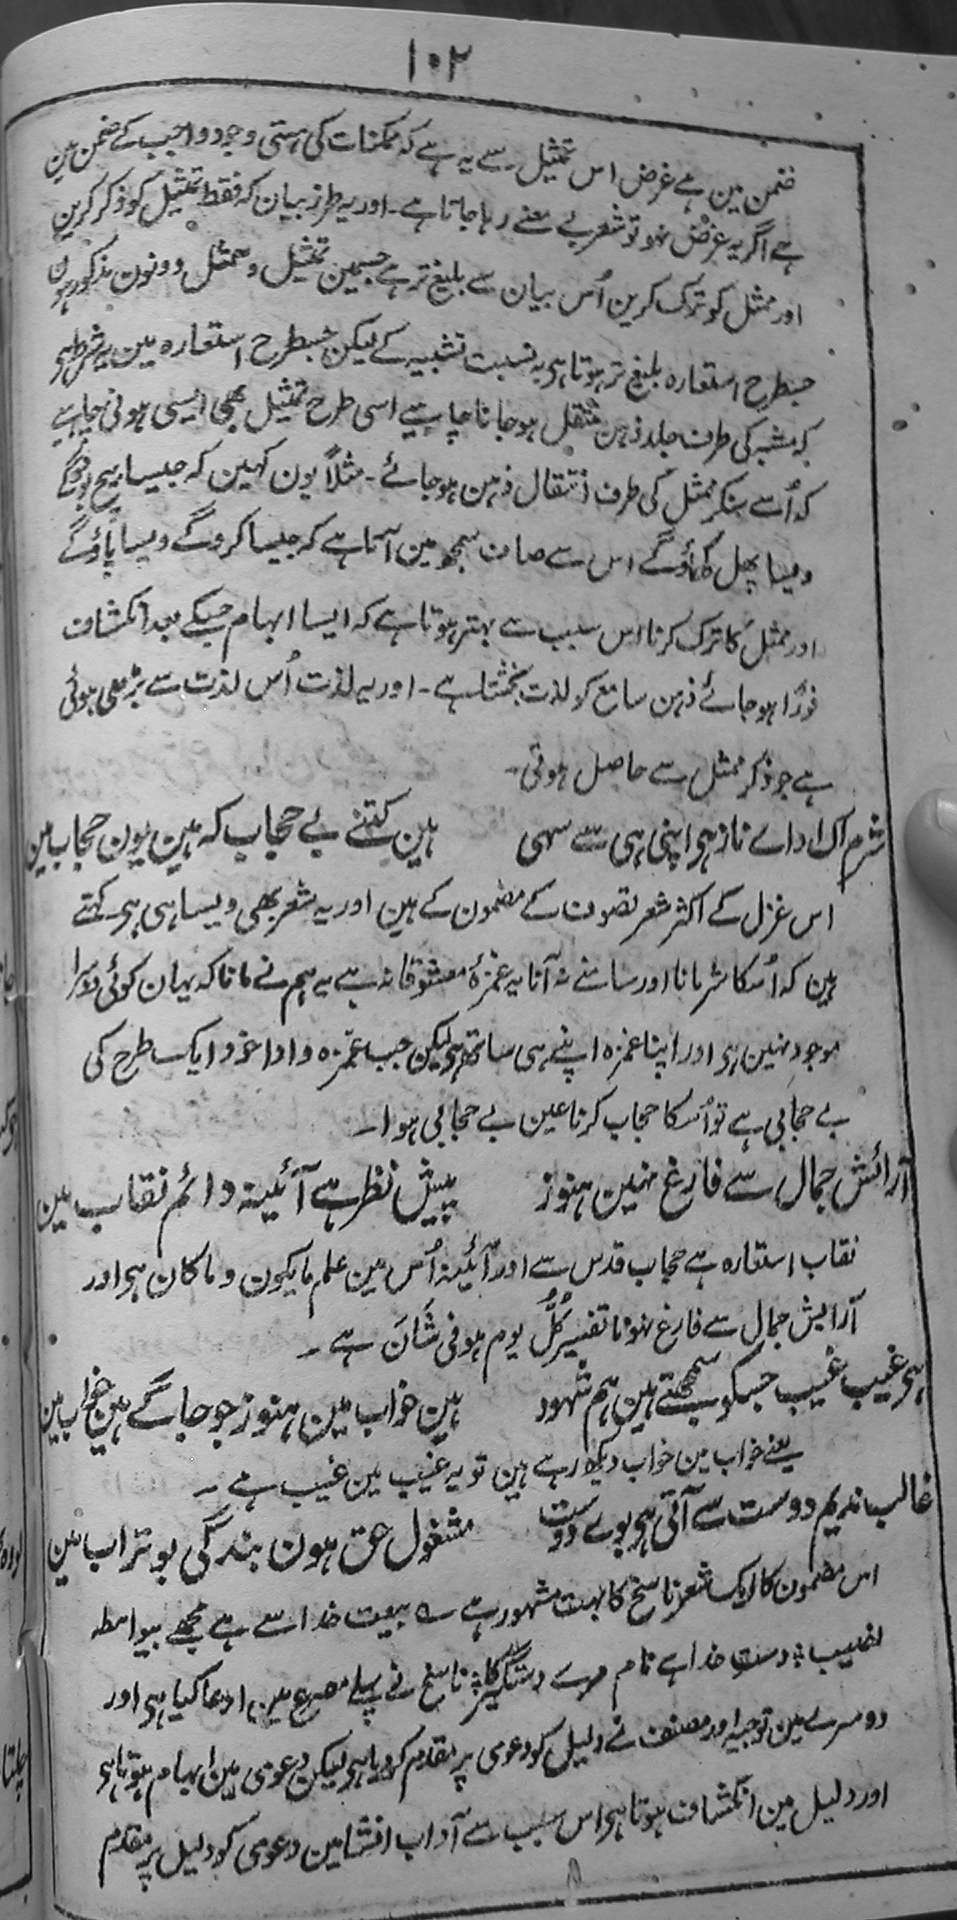 ۱۰۲
ضمن مین ہے غرض اس تمثیل سے یہ ہے کہ ممکنات کی ہستی وجود واجب کے ضمن مین
ہے اگر یہ غرض نہو تو شعر بے معنے رہا جاتا ہے۔ اور یہ طرز بیان کہ فقط تمثیل کو ذکر کرین
اور ممثل کو ترک کرین اُس بیان سے بلیغ تر ہے جسمین تمثیل و ممثل دونون مذکور ہون
جسطرح استعارہ بلیغ تر ہوتا ہی بہ نسبت تشبیہ کے لیکن جسطرح استعارہ مین یہ شرط ہی
کہ مشبہ کی طرف جلد ذہن منتقل ہو جانا چاہیے اسی طرح تمثیل بھی ایسی ہونی چاہیے
کہ اُسے سنکر ممثل کی طرف انتقال ذہن ہو جائے۔ مثلاً یون کہین کہ جیسا بیج بوؤگے
ویسا پھل کھاؤگے اس سے صاف سمجھ مین آتا ہے کہ جیسا کروگے ویسا پاؤگے
اور ممثل کا ترک کرنا اس سبب سے بہتر ہوتا ہے کہ ایسا ابہام جسکے بعد انکشاف
فوراً ہو جائے ذہن سامع کو لذت بخشتا ہے۔ اور یہ لذت اُس لذت سے بڑھی ہوئی
ہے جو ذکر ممثل سے حاصل ہوتی۔
شرم اک اداے ناز ہی اپنی ہی سے سہی ہین کتنے بے حجاب کہ ہین یون حجاب مین
اس غزل کے اکثر شعر تصوف کے مضمون کے ہین اور یہ شعر بھی ویسا ہی ہی۔ کہتے
ہین کہ اُسکا شرمانا اور سامنے نہ آنا یہ غمزۂ معشوقانہ ہے یہ ہم نے مانا کہ یہان کوئی دوسرا
موجود نہین ہی اور اپنا غمزہ اپنے ہی ساتھ ہی لیکن جب غمزہ و ادا خود ایک طرح کی
بے حجابی ہے تو اُسکا حجاب کرنا عین بے حجابی ہوا۔
آرائش جمال سے فارغ نہین ہنوز پیش نظر ہے آئینہ دائم نقاب مین
نقاب استعارہ ہے حجاب قدس سے اور آئینہ اُس مین علم مایکون و ماکان ہی اور
آرایش جمال سے فارغ نہونا تفسیر کُلَّ یوم ہو فی شَان ہے۔
ہی غیب غیب جسکو سمجھتے ہین ہم شہود ہین خواب مین ہنوز جو جاگے ہین خواب مین
یعنے خواب مین خواب دیکھ رہے ہین تو یہ غیب مین غیب ہے۔
غالب ندیم دوست سے آتی ہی بوے دوست مشغول حق ہون بندگی بوتراب مین
اس مضمون کا ایک شعر ناسخ کا بہت مشہور ہے ؎ بیعت خدا سے ہے مجھے بیواسطہ
نصیب ؛ دست خدا ہے نام مرے دستگیر کا ؛ ناسخ نے پہلے مصرع مین ادعا کیا ہی اور
دوسرے مین توجیہ اور مصنف نے دلیل کو دعوی پر مقدم کر دیا ہی لیکن دعوی مین ابہام ہوتا ہی
اور دلیل مین انکشاف ہوتا ہی اس سبب سے آداب انشا مین دعوی کو دلیل پر مقدم